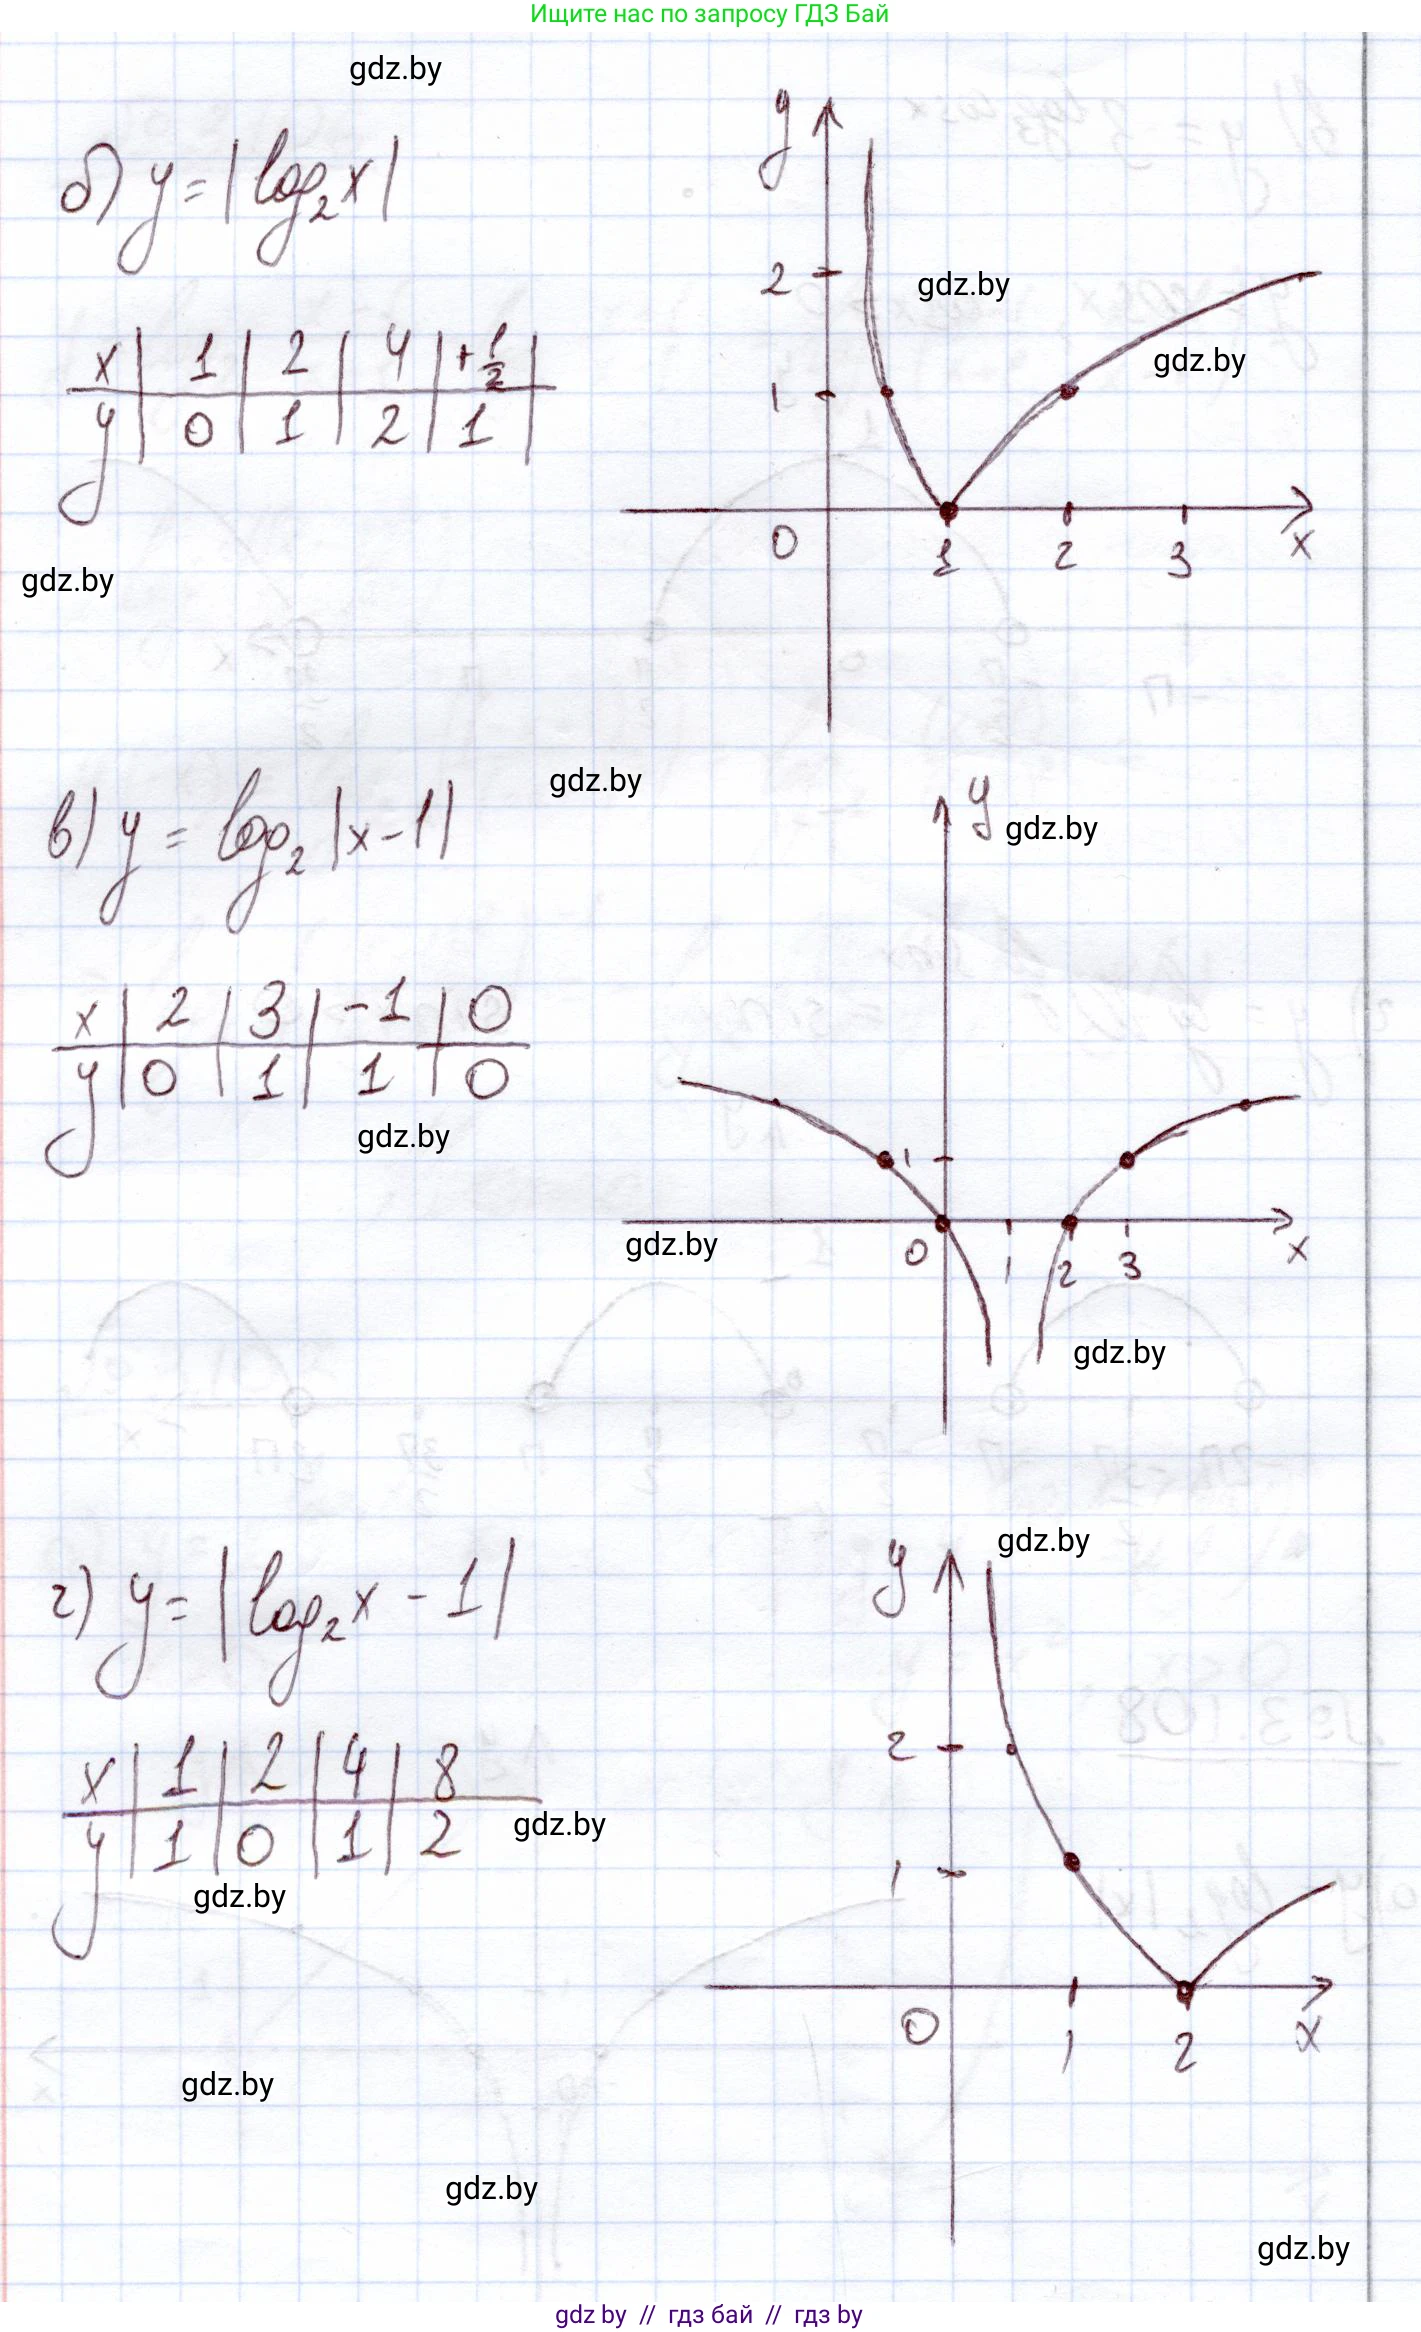 Ищите нас по запросу ГДЗ Бай
gdz.by
б) y = |log₂x|
y
2
1
0 1 2 3 x
gdz.by
gdz.by
x | 1 | 2 | 4 | +1/2 |
y | 0 | 1 | 2 | 1 |
gdz.by
gdz.by
в) y = log₂|x-1|
y
gdz.by
x | 2 | 3 | -1 | 0
y | 0 | 1 | 1 | 0
gdz.by
1
gdz.by
0 1 2 3 x
gdz.by
gdz.by
г) y = |log₂x - 1|
y
2
1
0 1 2 x
x | 1 | 2 | 4 | 8
y | 1 | 0 | 1 | 2
gdz.by
gdz.by
gdz.by
gdz.by
gdz.by
gdz by // гдз бай // гдз by